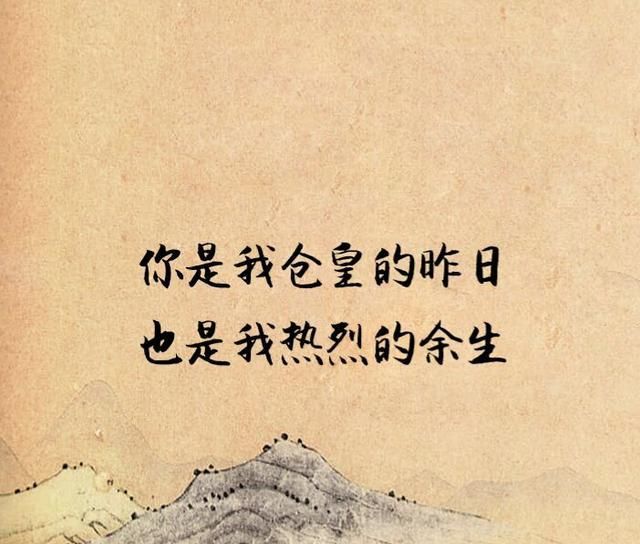 你是我仓皇的昨日
也是我热烈的余生